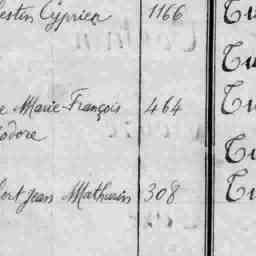 estin Cyprien 1166 Tu
Tu
e Marie-François 464 Tu
odore
Tu
fort Jean Mathurin 308 Tu